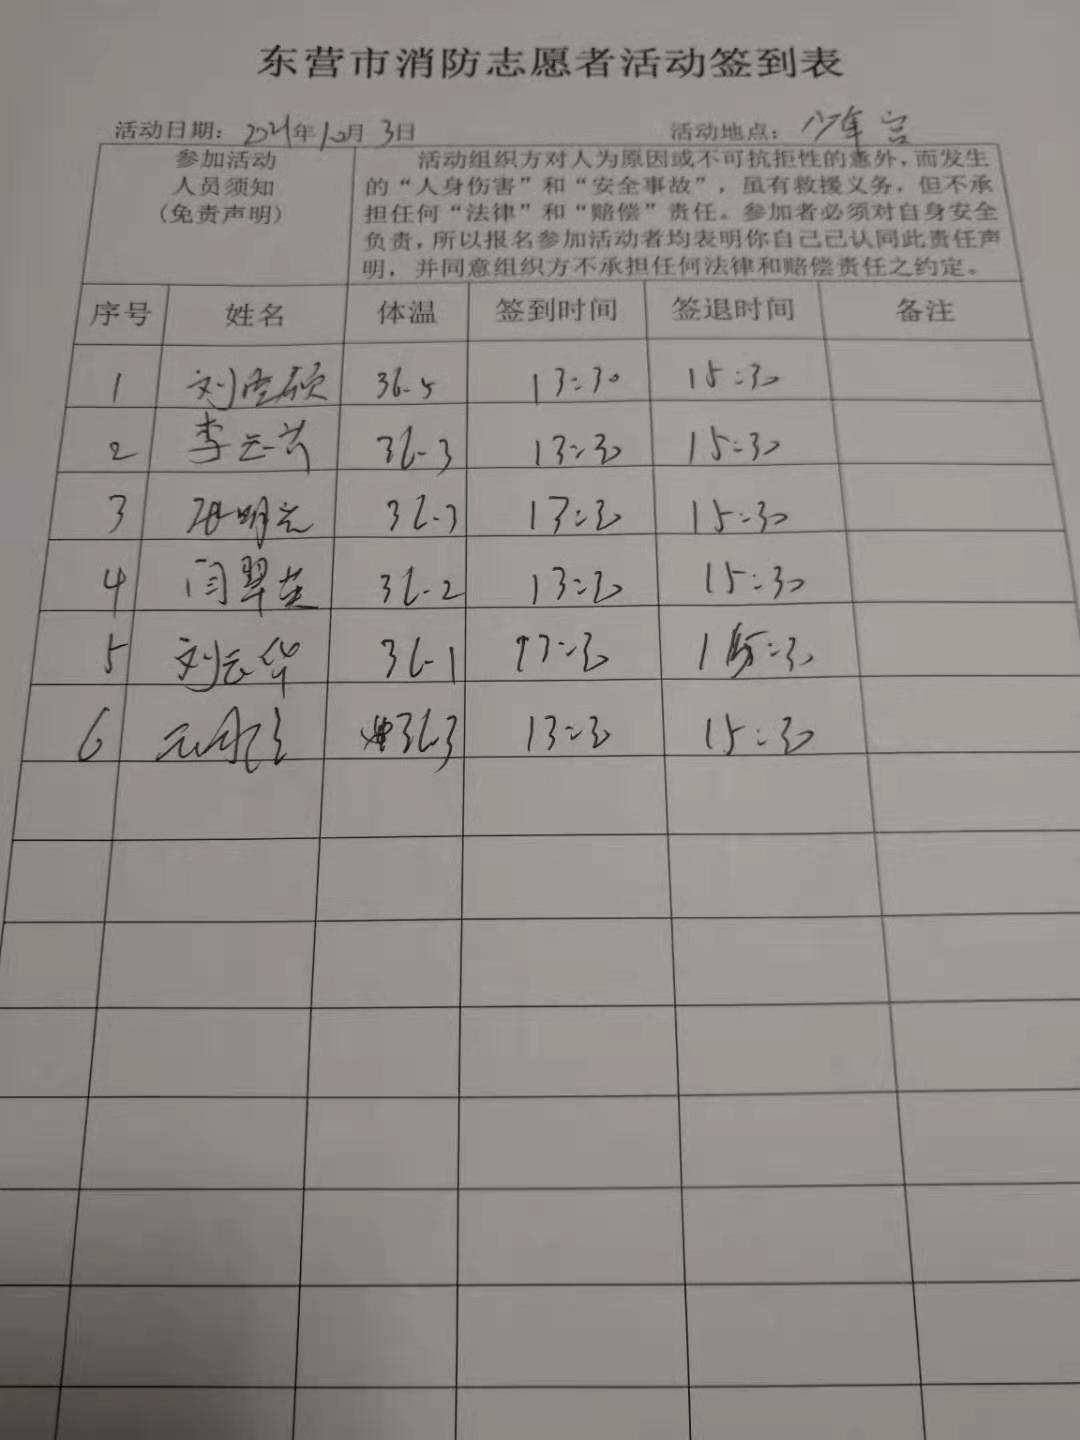 东营市消防志愿者活动签到表
活动日期：2021年10月3日 活动地点：少年宫
参加活动
人员须知
(免责声明)
活动组织方对人为原因或不可抗拒性的意外，而发生
的“人身伤害”和“安全事故”，虽有救援义务，但不承
担任何“法律”和“赔偿”责任。参加者必须对自身安全
负责，所以报名参加活动者均表明你自己已认同此责任声
明，并同意组织方不承担任何法律和赔偿责任之约定。
序号 姓名 体温 签到时间 签退时间 备注
1 36.5 13:30 15:30
2 36.3 13:30 15:30
3 36.3 13:30 15:30
4 闫翠英 36.2 13:30 15:30
5 刘云华 36.1 13:30 15:30
6 36.3 13:30 15:30